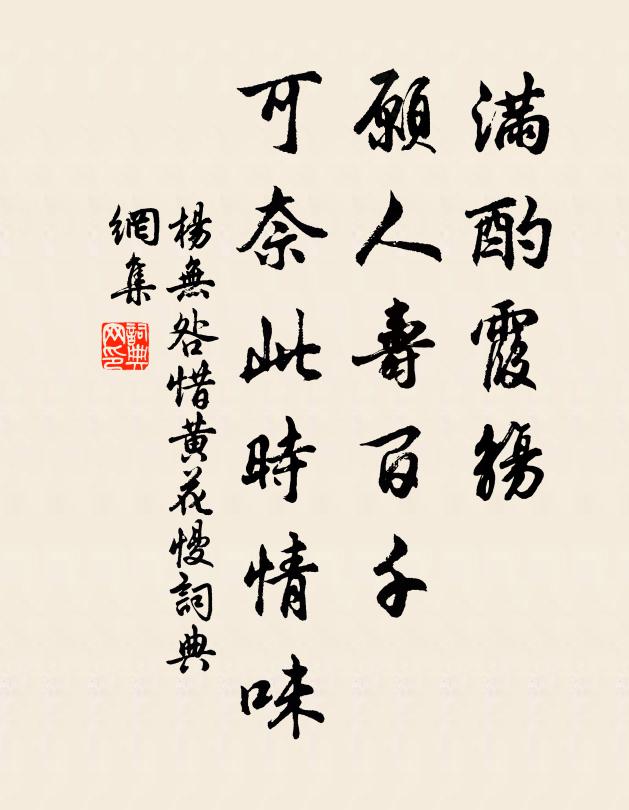 滿酌霞觴
願人壽百千
可奈此時情味
楊無咎惜黄花慢詞典
網集
詞典網印